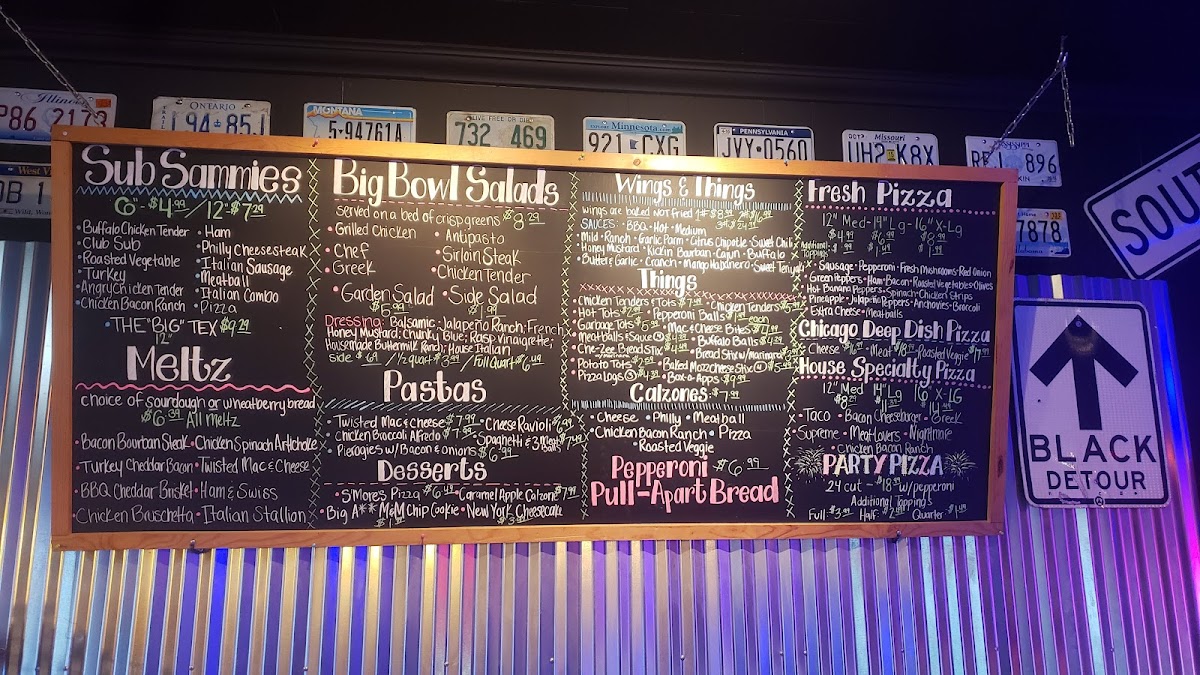 Illinois
P86 2173
ONTARIO
94 85J
MONTANA
5-94761A
LIVE FREE OR DIE
732 469
Minnesota
921 CXG
PENNSYLVANIA
JVY 0560
Missouri
UH2 K8X
896
West Vi
7878
SOUT
BLACK
DETOUR
Sub Sammies
6"-$4.99/12"$7.29
• Buffalo Chicken Tender • Ham
• Club Sub • Philly Cheesesteak
• Roasted Vegetable • Italian Sausage
• Turkey • Meatball
• Angry Chicken Tender • Italian Combo
• Chicken Bacon Ranch • Pizza
• THE "BIG" TEX $9.29
12"
Meltz
choice of sourdough or wheatberry bread
$6.39 All meltz
• Bacon Bourban Steak • Chicken Spinach Artichoke
• Turkey Cheddar Bacon • Twisted Mac & Cheese
• BBQ Cheddar Brisket • Ham & Swiss
• Chicken Bruschetta • Italian Stallion
Big Bowl Salads
served on a bed of crisp greens $8.29
• Grilled Chicken • Antipasto
• Chef • Sirloin Steak
• Greek • Chicken Tender
• Garden Salad • Side Salad
$6.99 $1.99
Dressing: Balsamic; Jalapeño Ranch; French;
Honey Mustard; Chunky Blue; Rasp Vinaigrette;
Housemade Buttermilk Ranch; House Italian
side $.69 / 1/2 quart $3.99 / Full quart $6.49
Pastas
• Twisted Mac & Cheese $7.99 • Cheese Ravioli $6.99
• Chicken Broccoli Alfredo $7.99 • Spaghetti & 3 Meat Balls $7.49
• Pierogies w/ Bacon & onions $6.99
Desserts
• S'Mores Pizza $6.49 • Caramel Apple Calzone $7.99
• Big A** M&M Chip Cookie • New York Cheesecake
$3.99
Wings & Things
wings are baked NOT fried 1# $8.99
SAUCES: • BBQ • Hot • Medium
Mild • Ranch • Garlic Parm • Citrus Chipotle • Sweet Chili
Honey Mustard • Kickin Bourban • Cajun • Buffalo
Butter & Garlic • Cranch • Mango Habanero • Sweet Teriyaki
Things
• Chicken Tenders & Tots $7.99 • Chicken Tenders
• Hot Tots $2.99 • Pepperoni Balls $1 each
• Garbage Tots • Mac & Cheese Bites $4.99
• Meatballs & Sauce • Buffalo Balls
• Che-Zee Bread Stix • Bread Stix w/ marinara
• Potato Tots • Baked Mozzcheese Stix
• Pizza Logs $4.99 • Box-o-Apps $9.99
Calzones $7.99
• Cheese • Philly • Meatball
• Chicken Bacon Ranch • Pizza
• Roasted Veggie
Pepperoni $6.99
Pull-Apart Bread
Fresh Pizza
12" Med - 14" Lg - 16" X-Lg
Additional Toppings
• Sausage • Pepperoni • Fresh Mushrooms • Red Onion
• Green Peppers • Ham • Bacon • Roasted Vegetables • Olives
Hot Banana Peppers • Spinach • Chicken Strips
Pineapple • Jalapeño Peppers • Anchovies • Broccoli
Extra Cheese • Meatballs
Chicago Deep Dish Pizza
Cheese Meat $18 Roasted Veggie
House Specialty Pizza
12" Med 14" Lg 16" X-LG
• Taco • Bacon Cheeseburger • Greek
Supreme • Meat Lovers • Nightmare
Chicken Bacon Ranch
PARTY PIZZA
24 cut - $18.99 w/pepperoni
Additional Toppings
Full: $3.99 Half: $2.99 Quarter: $1.49